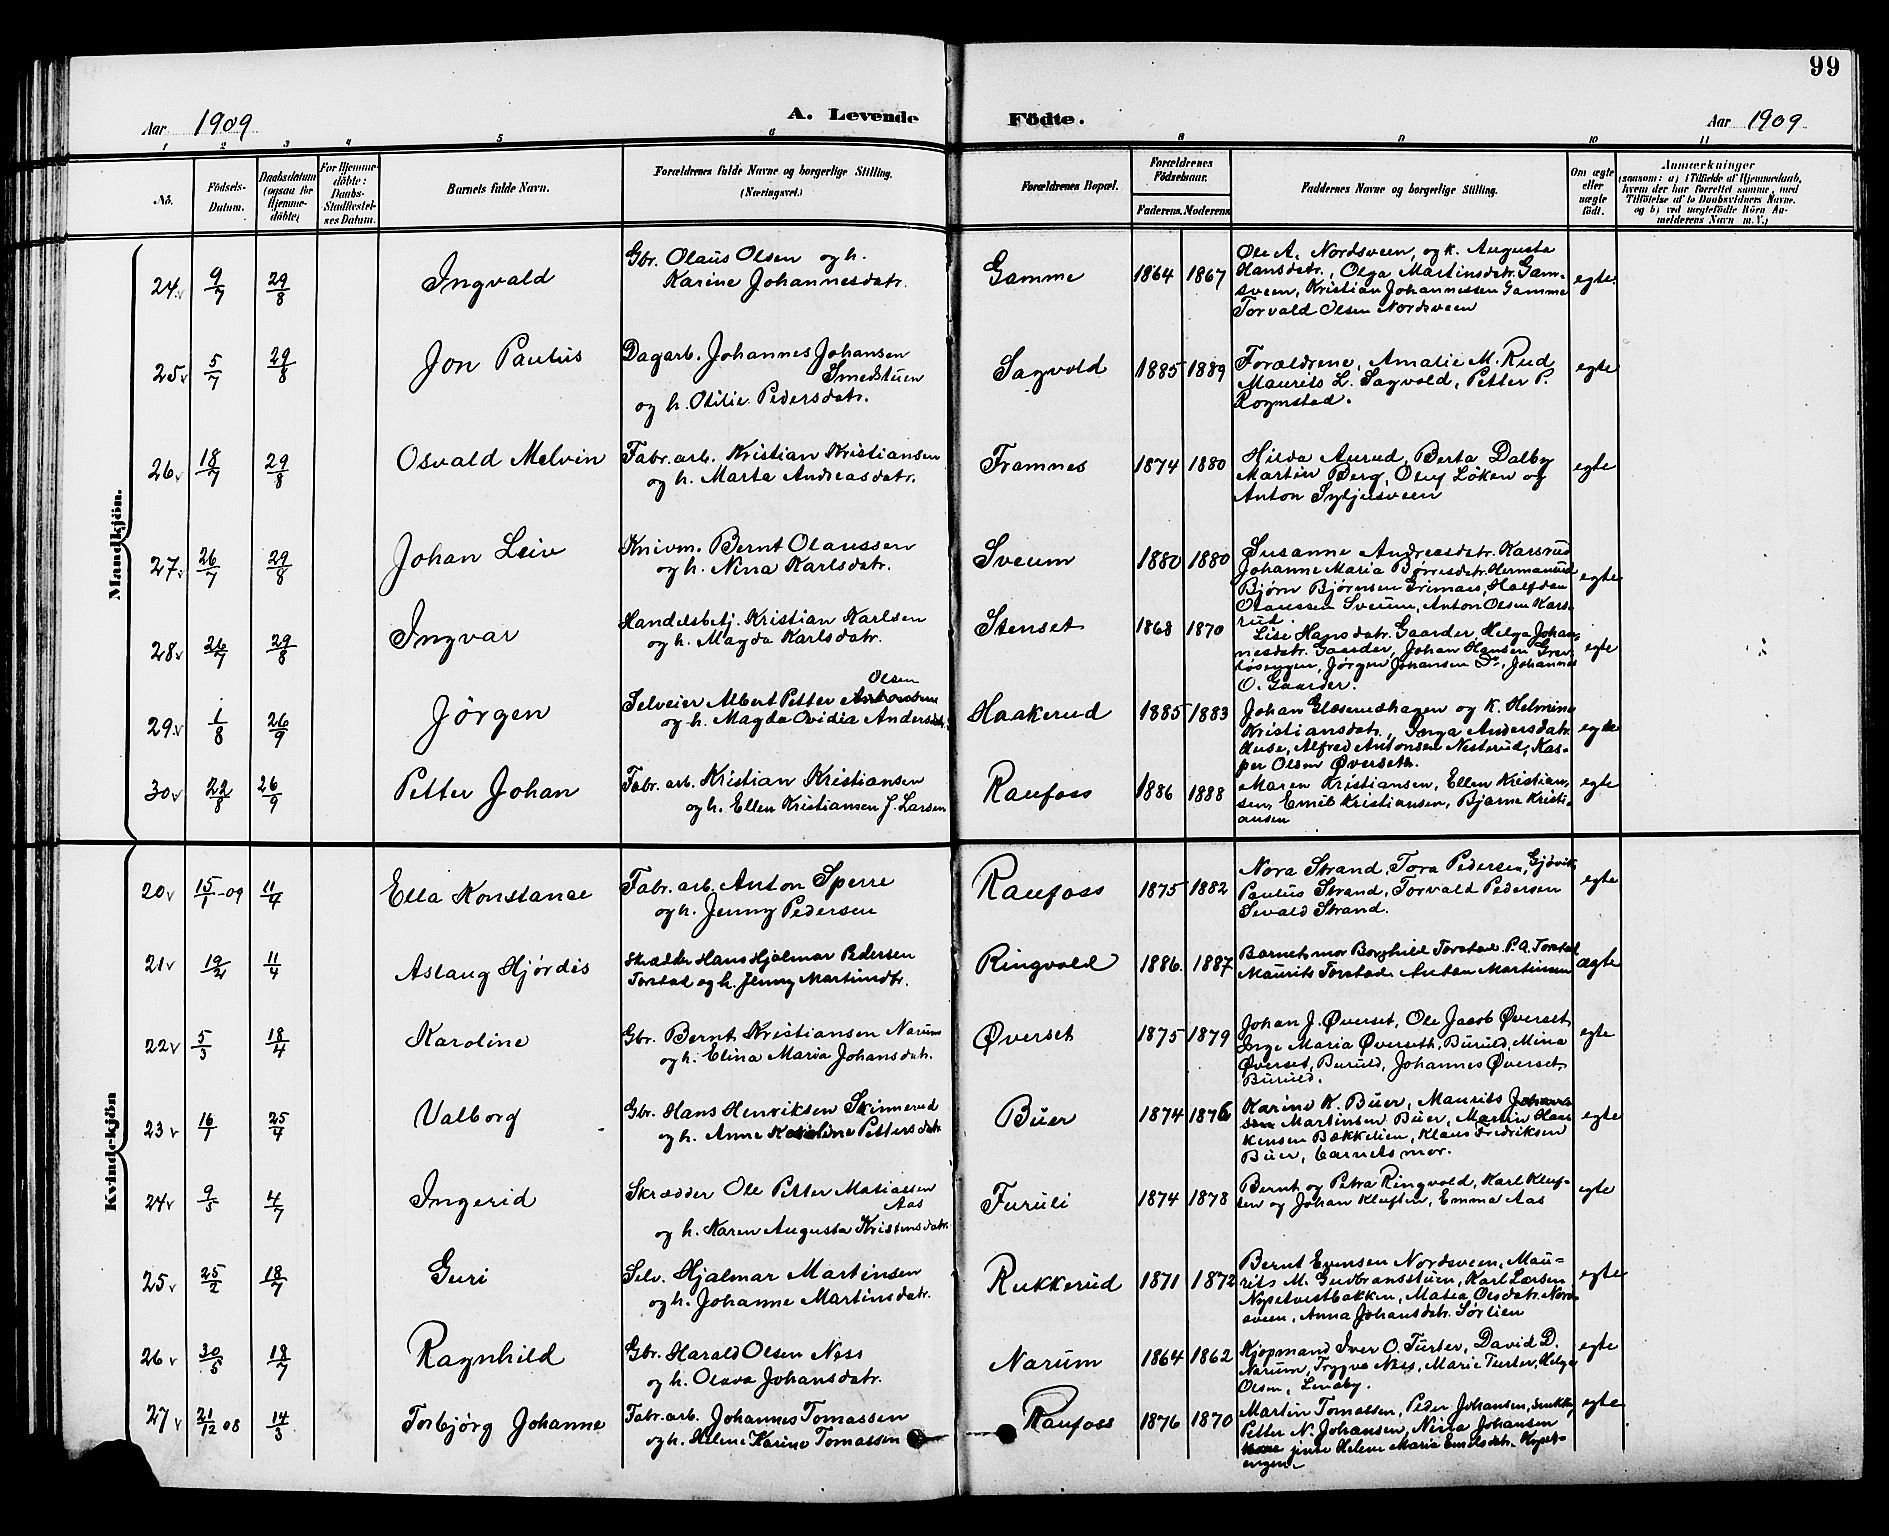 99
Aar 1909
A. Levende Födte.
Aar 1909.
1 2 3 4 5 6 8 9 10 11
No.
Födsels-
Datum.
Daabsdatum
(ogsaa for
Hjemme-
döbte)
For Hjemme-
döbte:
Daabs-
Stadfæstel-
ses Datum.
Barnets fulde Navn.
Forældrenes fulde Navne og borgerlige Stilling.
(Næringsvei.)
Forældrenes Bopæl.
Forældrenes
Födselsaar.
Faderens. Moderens
Faddernes Navne og borgerlige Stilling.
Om ægte
eller
uægte
födt.
Anmærkninger
(saasom: a) i Tilfælde af Hjemmedaab,
hvem der har forrettet samme, med
Tilföielse af to Daabsvidners Navne,
og b) ved uægtefödte Börn An-
melderens Navn m. V.)
Mandkjön.
24. 9/7 29/8 Ingvald
Gbr. Olaus Olsen og h.
Karine Johannesdatr.
Gamme 1864 1867
Ole A. Nordsveen, og k. Augusta
Hansdatr., Olga Martinsdatr. Gam-
sveen, Kristian Johannessen Gamme
Torvald Olsen Nordsveen
egte.
25 5/7 29/8 Jon Paulus
Dagarb. Johannes Johansen
Smedstuen
og h. Otilie Pedersdatr.
Sagvold 1885 1889
Forældrene, Amalie M. Rud
Maurits L. Sagvold, Petter P.
Rognstad.
egte
26 18/7 29/8 Osvald Melvin
Fabr. arb. Kristian Kristiansen
og h. Marta Andreasdatr.
Framnes 1874 1880
Hilda Aurud, Berta Dalby
Martin Berg, Oluf Løken og
Anton Syljusveen
egte
27 26/7 29/8 Johan Leiv
Knivm. Bernt Olaussen
og h. Nina Karlsdatr.
Sveum 1880 1880
Susanne Andreasdatr. Karsrud
Johanne Maria Børresdatr. Hermanrud
Bjørn Bjørnsen Grimaas, Halfdan
Olaussen Sveum, Anton Olsen Kars-
rud.
egte
28 26/7 29/8 Ingvar
Handelsbetj. Kristian Karlsen
og h. Magda Karlsdatr.
Stenset 1868 1870
Lise Hansdatr. Gaarder, Helga Johan-
nesdatr. Gaarder, Johan Hansen
Jørgen Johansen Do, Johannes
O. Gaarder.
egte
29 1/8 26/9 Jørgen
Olsen
Selveier Albert Petter
og h. Magda Ovidia Andersdatr.
Haakerud 1885 1883
Johan Glæserudhagen og k. Helmine
Kristiansdatr., Inga Andersdatr.
Huse, Alfred Antonsen Nesterud, Kas-
per Olsen Øverseth.
egte
30 22/8 26/9 Petter Johan
Fabr. arb. Kristian Kristiansen
og h. Ellen Kristiansen f. Larsen
Raufoss 1886 1888
Maren Kristiansen, Ellen Kristian-
sen, Emil Kristiansen, Bjarne Kristi-
ansen
egte
Kvindekjön
20 15/1 -09 11/4 Ella Konstanse
Fabr. arb. Anton Sperre
og h. Jenny Pedersen
Raufoss 1875 1882
Nora Strand, Tora Pedersen, Gjøvik
Paulus Strand, Torvald Pedersen
Sevald Strand.
egte
21 19/2 11/4 Aslaug Hjørdis
Skrædder Hans Hjalmar Pedersen
Torstad og h. Jenny Martinsdtr.
Ringvold 1886. 1887
Barnets mor Borghild Torstad. P. A. Torstad
Maurits Torstad Anton Martinsen
ægte
22 5/3 18/4 Karoline
Gbr. Bernt Kristiansen Narum
og h. Elina Maria Johansdatr.
Øverset 1875 1879
Johan J. Øverset, Ole Jacob Øverset
Inge Maria Øverseth, Burud, Mina
Øverset, Burud, Johannes Øverset
Burud.
egte
23 16/1 25/4 Valborg
Gbr. Hans Henriksen Skinnerud
og h. Anne Karoline Pettersdatr.
Buer 1874 1876
Karine K. Buer, Maurits
Martinsen Buer, Martin Haa-
kensen Bækkelien, Klaus Fredriksen
Buer, barnets mor.
egte
24 9/5 4/7 Ingerid
Skrædder Ole Petter Matiassen
Aas
og h. Karen Augusta Kristensdatr.
Furuli 1874 1878
Bernt og Petra Ringvold, Karl Kluf-
ten og Johan Kluften, Emma Aas
egte
25 25/2 18/7 Guri
Selv. Hjalmar Martinsen
og h. Johanne Martinsdatr.
Rukkerud 1871 1872
Bernt Evensen Nordsveen, Mau-
rits M. Gudbransstuen, Karl Larsen
Nysetvestbakken, Matea Olsdatr. Nord-
sveen, Anna Johansdatr. Sørlien
egte
26 30/5 18/7 Ragnhild
Gbr. Harald Olsen Ness
og h. Olava Johansdatr.
Narum 1864 1862
Kjøpmand Iver O. Turter, David D.
Narum, Trygve Ness, Marie Turter, Helga
Olsen, Lundby.
egte
27 21/12 08 14/3 Torbjørg Johanne
Fabr. arb. Johannes Tomassen
og h. Helene Karine Tomassen
Raufoss 1876 1870
Martin Tomassen, Peder Johansen,
Petter N. Johansen, Nina Johansen
Helene Maria Emilsdatr.
engen.
egte